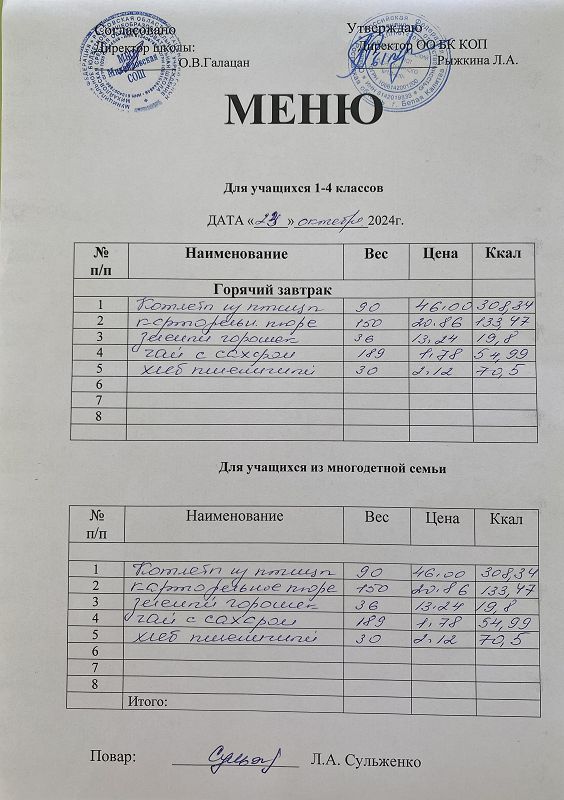 Согласовано Утверждаю
Директор школы: Директор ОО БК КОП
О.В.Галацан Рыжкина Л.А.
МЕНЮ
Для учащихся 1-4 классов
ДАТА «24» октября 2024г.
№ п/п Наименование Вес Цена Ккал
Горячий завтрак
1 Котлета из птицы 90 46.00 308,34
2 картофельн. пюре 150 20.86 133,47
3 зеленый горошек 36 13.24 19,8
4 чай с сахаром 189 1.78 54,99
5 хлеб пшеничный 30 2.12 70,5
6
7
8
Для учащихся из многодетной семьи
№ п/п Наименование Вес Цена Ккал
1 Котлета из птицы 90 46.00 308,34
2 картофельное пюре 150 20.86 133,47
3 зеленый горошек 36 13.24 19,8
4 чай с сахаром 189 1.78 54,99
5 хлеб пшеничный 30 2.12 70,5
6
7
8
Итого:
Повар: Л.А. Сульженко